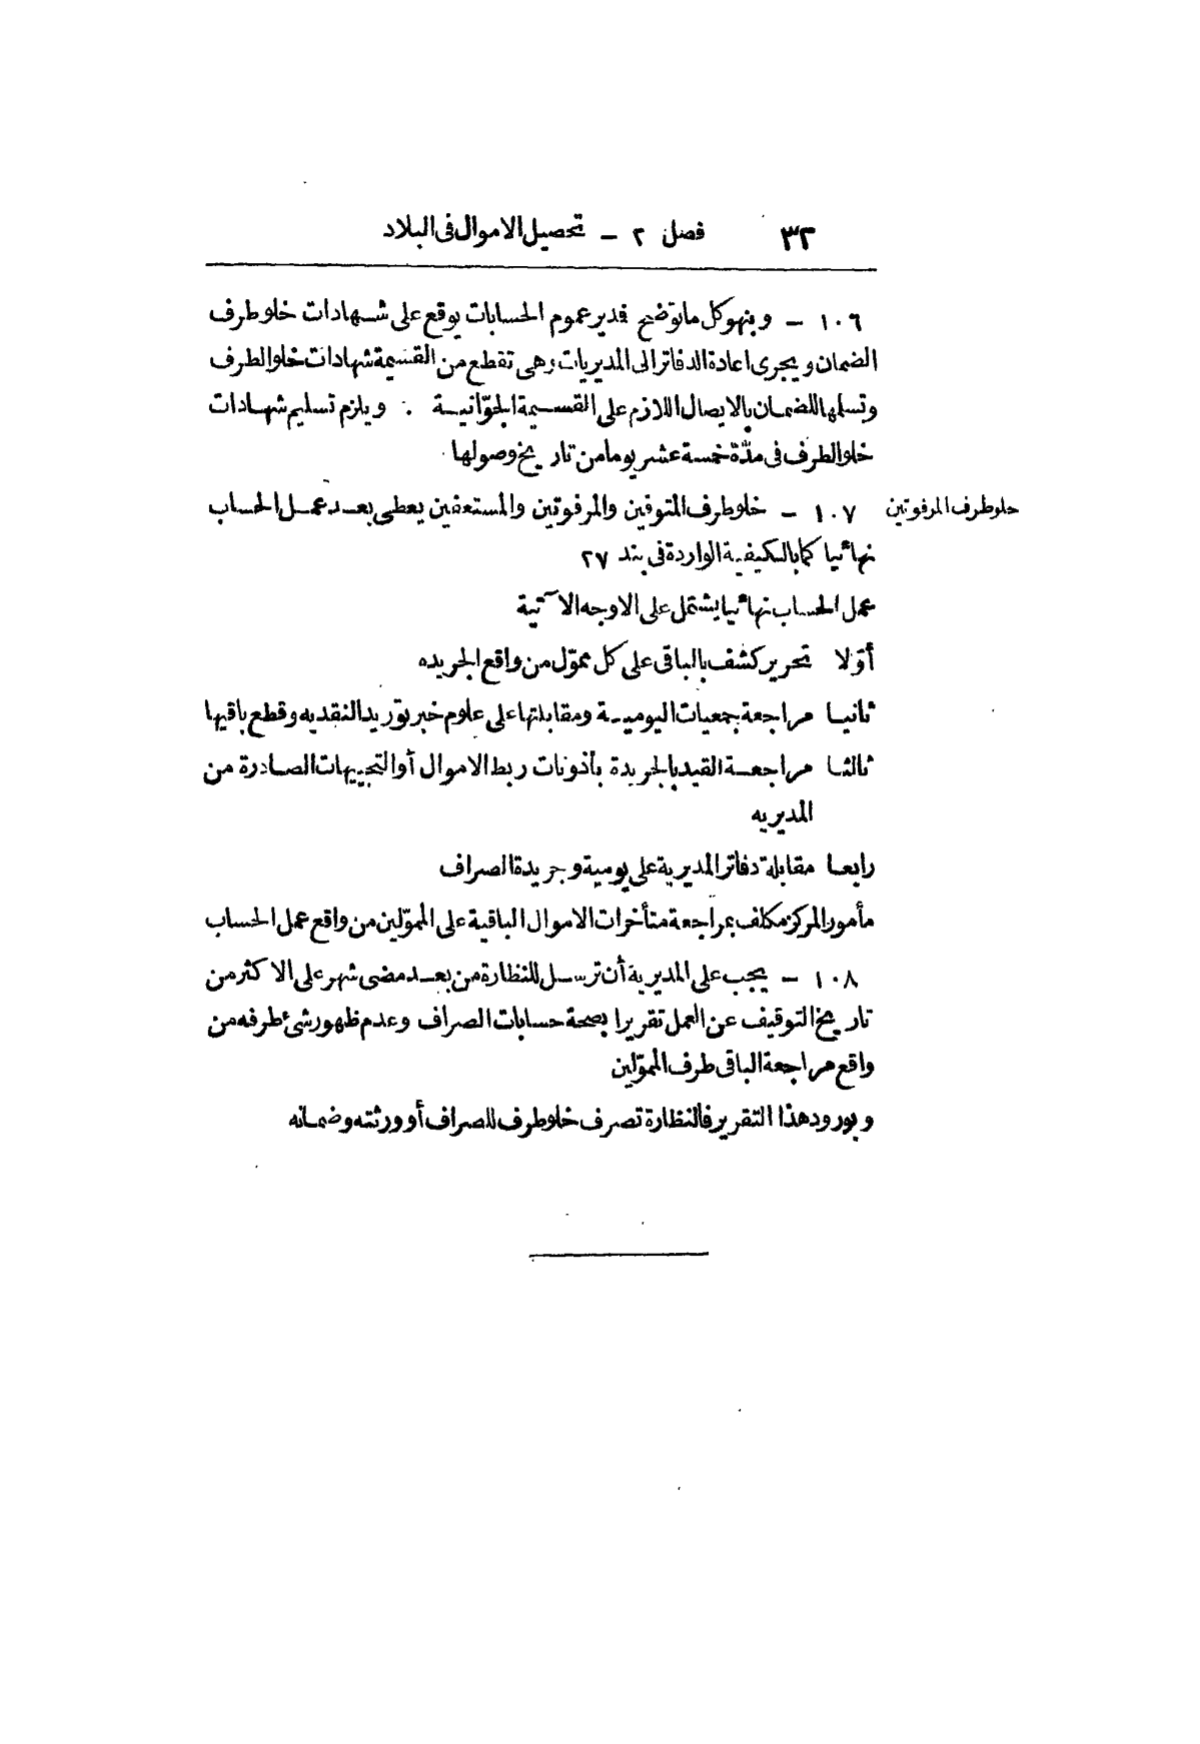 ٣٢ فصل ٢ – تحصيل الاموال فى البلاد
١٠٦ – وبنهو كل ما توضح فدير عموم الحسابات يوقع على شهادات خلو طرف
الضمان ويجرى اعادة الدفاتر الى المديريات وهى تقطع من القسيمة شهادات خلو الطرف
وتسلمها للضمان بالايصال اللازم على القسيمة الجوّانية . ويلزم تسليم شهادات
خلو الطرف فى مدّة خمسة عشر يوما من تاريخ وصولها
خلو طرف المرفوتين
١٠٧ – خلو طرف المتوفين والمرفوتين والمستعفين يعطى بعد عمل الحساب
نهائيا كما بالكيفية الواردة فى بند ٢٧
عمل الحساب نهائيا يشتمل على الاوجه الآتية
أوّلا تحرير كشف بالباقى على كل مموّل من واقع الجريده
ثانيا مراجعة جمعيات اليومية ومقابلتها على علوم خبر توريد النقديه وقطع باقيها
ثالثا مراجعة القيد بالجريدة بأذونات ربط الاموال أو التجييهات الصادرة من
المديريه
رابعا مقابلة دفاتر المديرية على يومية وجريدة الصراف
مأمور المركز مكلف بمراجعة متأخرات الاموال الباقية على المموّلين من واقع عمل الحساب
١٠٨ – يجب على المديرية أن ترسل للنظارة من بعد مضى شهر على الاكثر من
تاريخ التوقيف عن العمل تقريرا بصحة حسابات الصراف وعدم ظهور شئ طرفه من
واقع مراجعة الباقى طرف المموّلين
وبورود هذا التقرير فالنظارة تصرف خلو طرف للصراف أو ورثته وضمانه